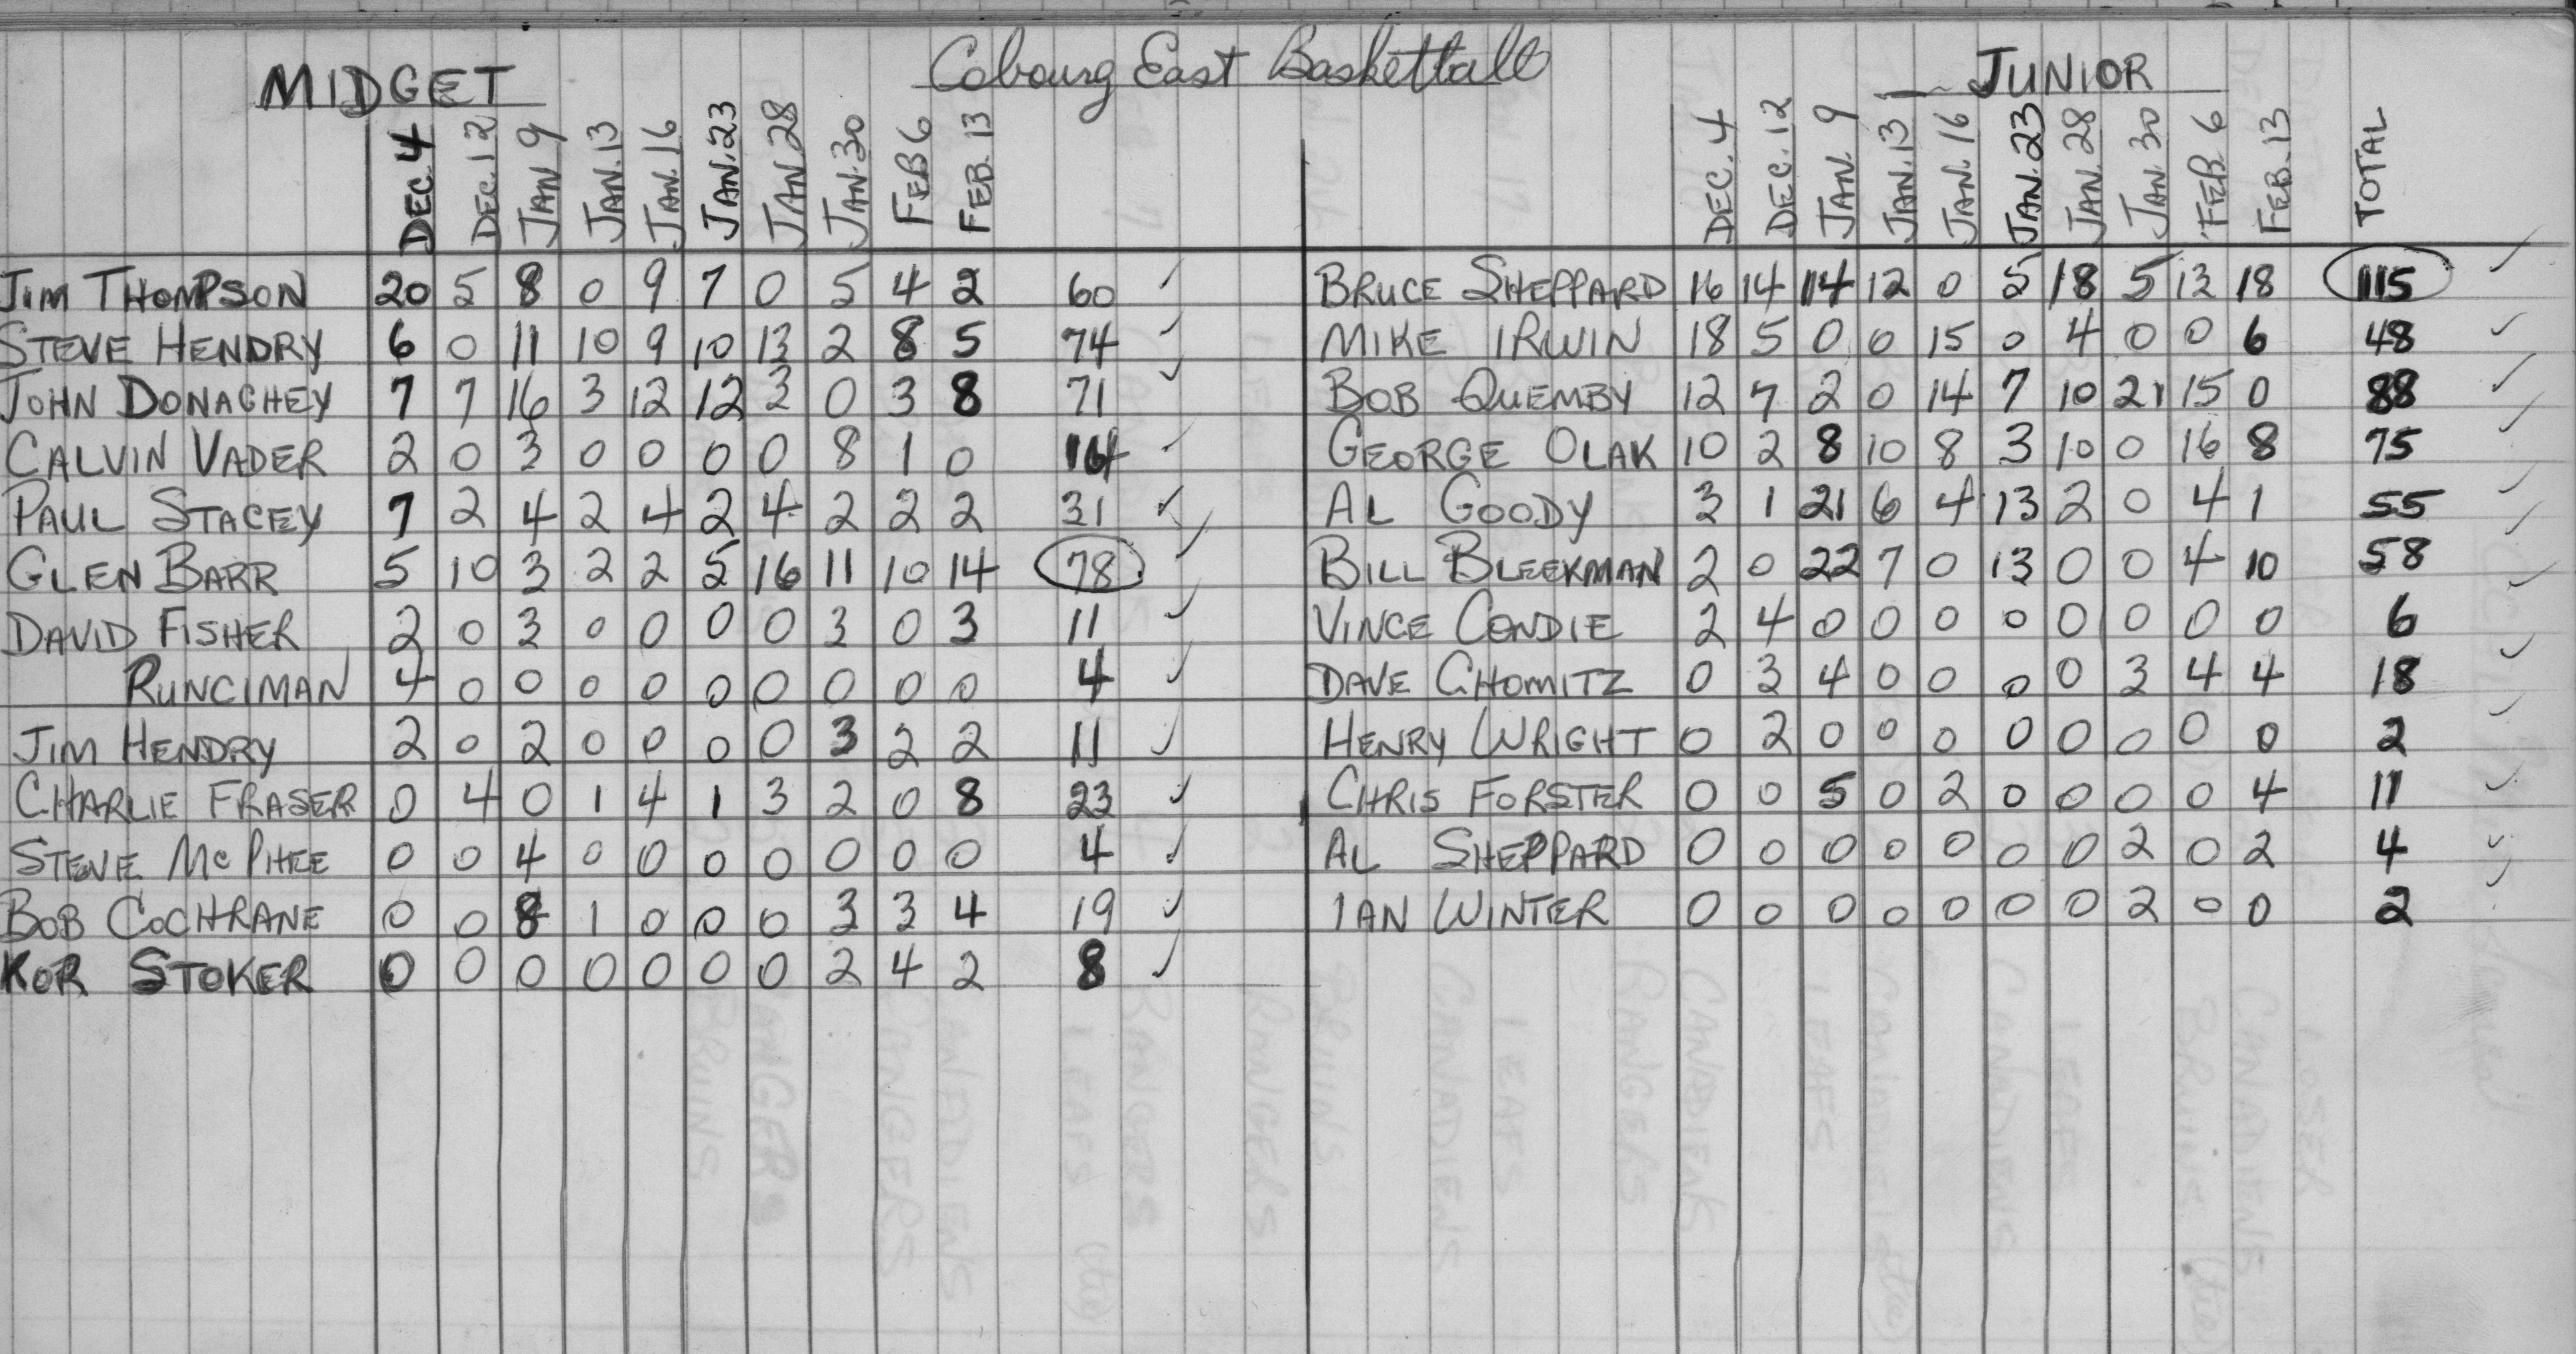 Cobourg East Basketball
MIDGET
DEC. 4 DEC. 12 JAN 9 JAN. 13 JAN. 16 JAN. 23 JAN 28 JAN. 30 FEB 6 FEB. 13
JIM THOMPSON 20 5 8 0 9 7 0 5 4 2 60
STEVE HENDRY 6 0 11 10 9 10 13 2 8 5 74
JOHN DONAGHEY 7 7 16 3 12 12 3 0 3 8 71
CALVIN VADER 2 0 3 0 0 0 0 8 1 0 14
PAUL STACEY 7 2 4 2 4 2 4 2 2 2 31
GLEN BARR 5 10 3 2 2 5 16 11 10 14 78
DAVID FISHER 2 0 3 0 0 0 0 3 0 3 11
RUNCIMAN 4 0 0 0 0 0 0 0 0 0 4
JIM HENDRY 2 0 2 0 0 0 0 3 2 2 11
CHARLIE FRASER 0 4 0 1 4 1 3 2 0 8 23
STEVE MCPHEE 0 0 4 0 0 0 0 0 0 0 4
BOB COCHRANE 0 0 8 1 0 0 0 3 3 4 19
KOR STOKER 0 0 0 0 0 0 0 2 4 2 8
JUNIOR
DEC. 4 DEC. 12 JAN. 9 JAN. 13 JAN. 16 JAN. 23 JAN. 28 JAN. 30 FEB. 6 FEB. 13 TOTAL
BRUCE SHEPPARD 16 14 14 12 0 5 18 5 13 18 115
MIKE IRWIN 18 5 0 0 15 0 4 0 0 6 48
BOB QUEMBY 12 7 2 0 14 7 10 21 15 0 88
GEORGE OLAK 10 2 8 10 8 3 10 0 16 8 75
AL GOODY 3 1 21 6 4 13 2 0 4 1 55
BILL BLEEKMAN 2 0 22 7 0 13 0 0 4 10 58
VINCE CONDIE 2 4 0 0 0 0 0 0 0 0 6
DAVE CHOMITZ 0 3 4 0 0 0 0 3 4 4 18
HENRY WRIGHT 0 2 0 0 0 0 0 0 0 0 2
CHRIS FORSTER 0 0 5 0 2 0 0 0 0 4 11
AL SHEPPARD 0 0 0 0 0 0 0 2 0 2 4
IAN WINTER 0 0 0 0 0 0 0 2 0 0 2